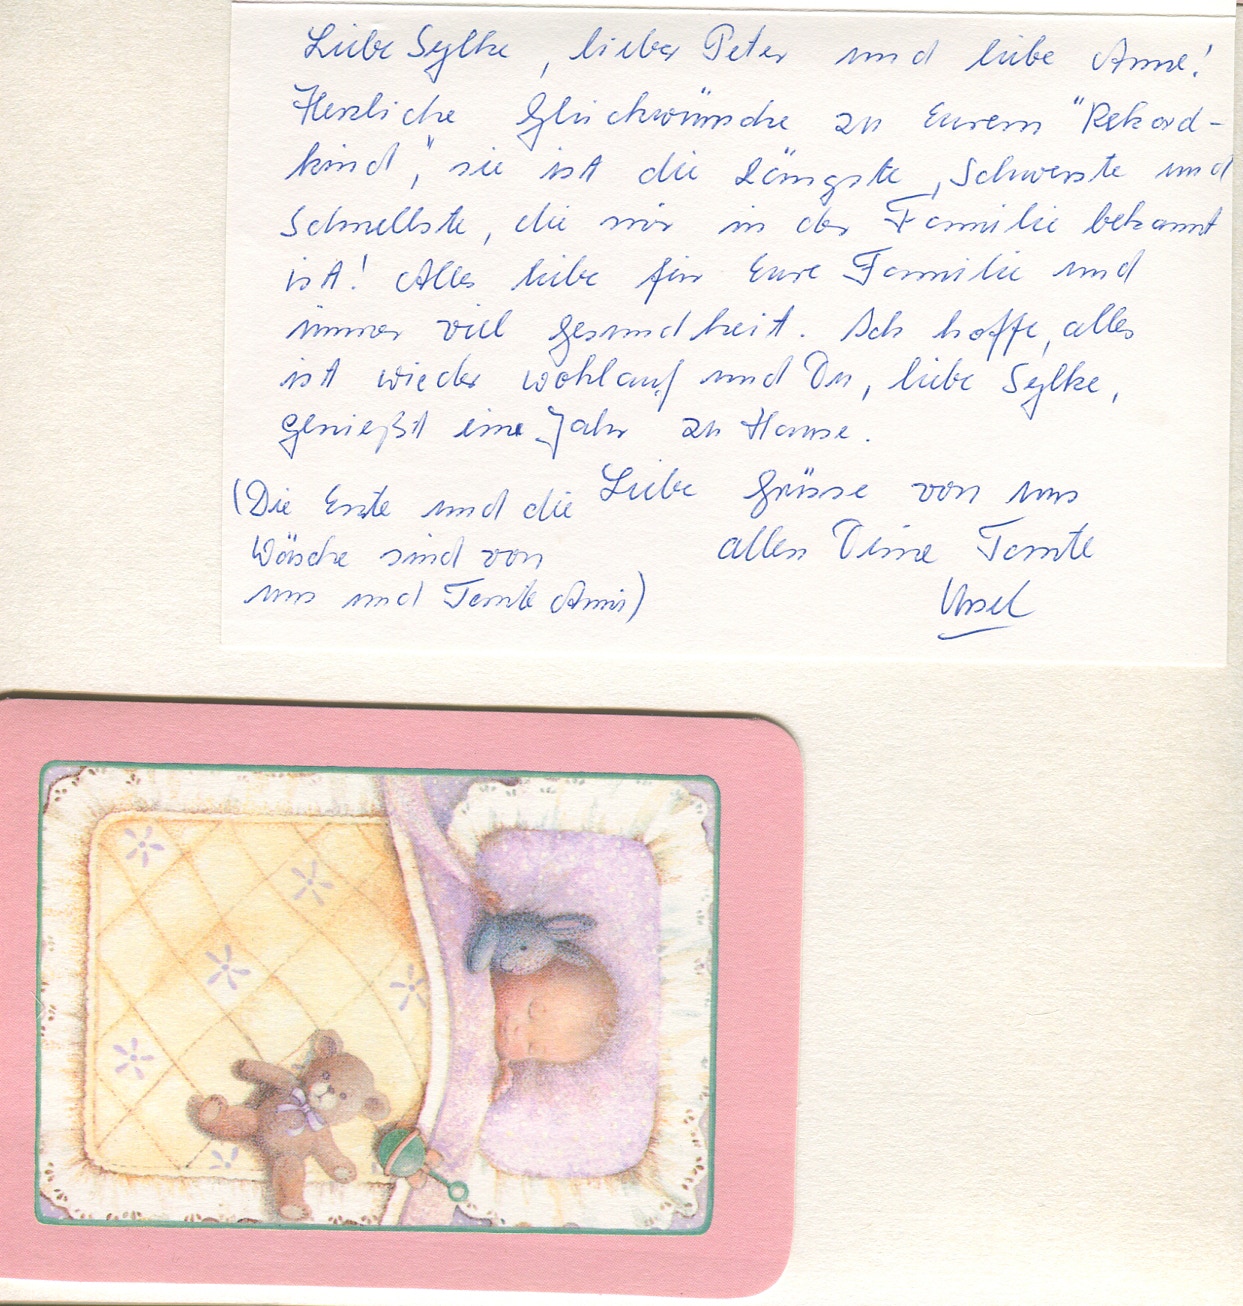 Liebe Sylke, lieber Peter und liebe Anne!
Herzliche Glückwünsche zu Eurem "Rekord-
kind", sie ist die Längste, Schwerste und
Schnellste, die mir in der Familie bekannt
ist! Alles liebe für Eure Familie und
immer viel Gesundheit. Ich hoffe, alles
ist wieder wohlauf und Du, liebe Sylke,
genießst eine Jahr zu Hause.
Liebe Grüsse von uns
allen Deine Tante
Ursel
(Die Ente und die
Wäsche sind von
uns und Tante Anni)